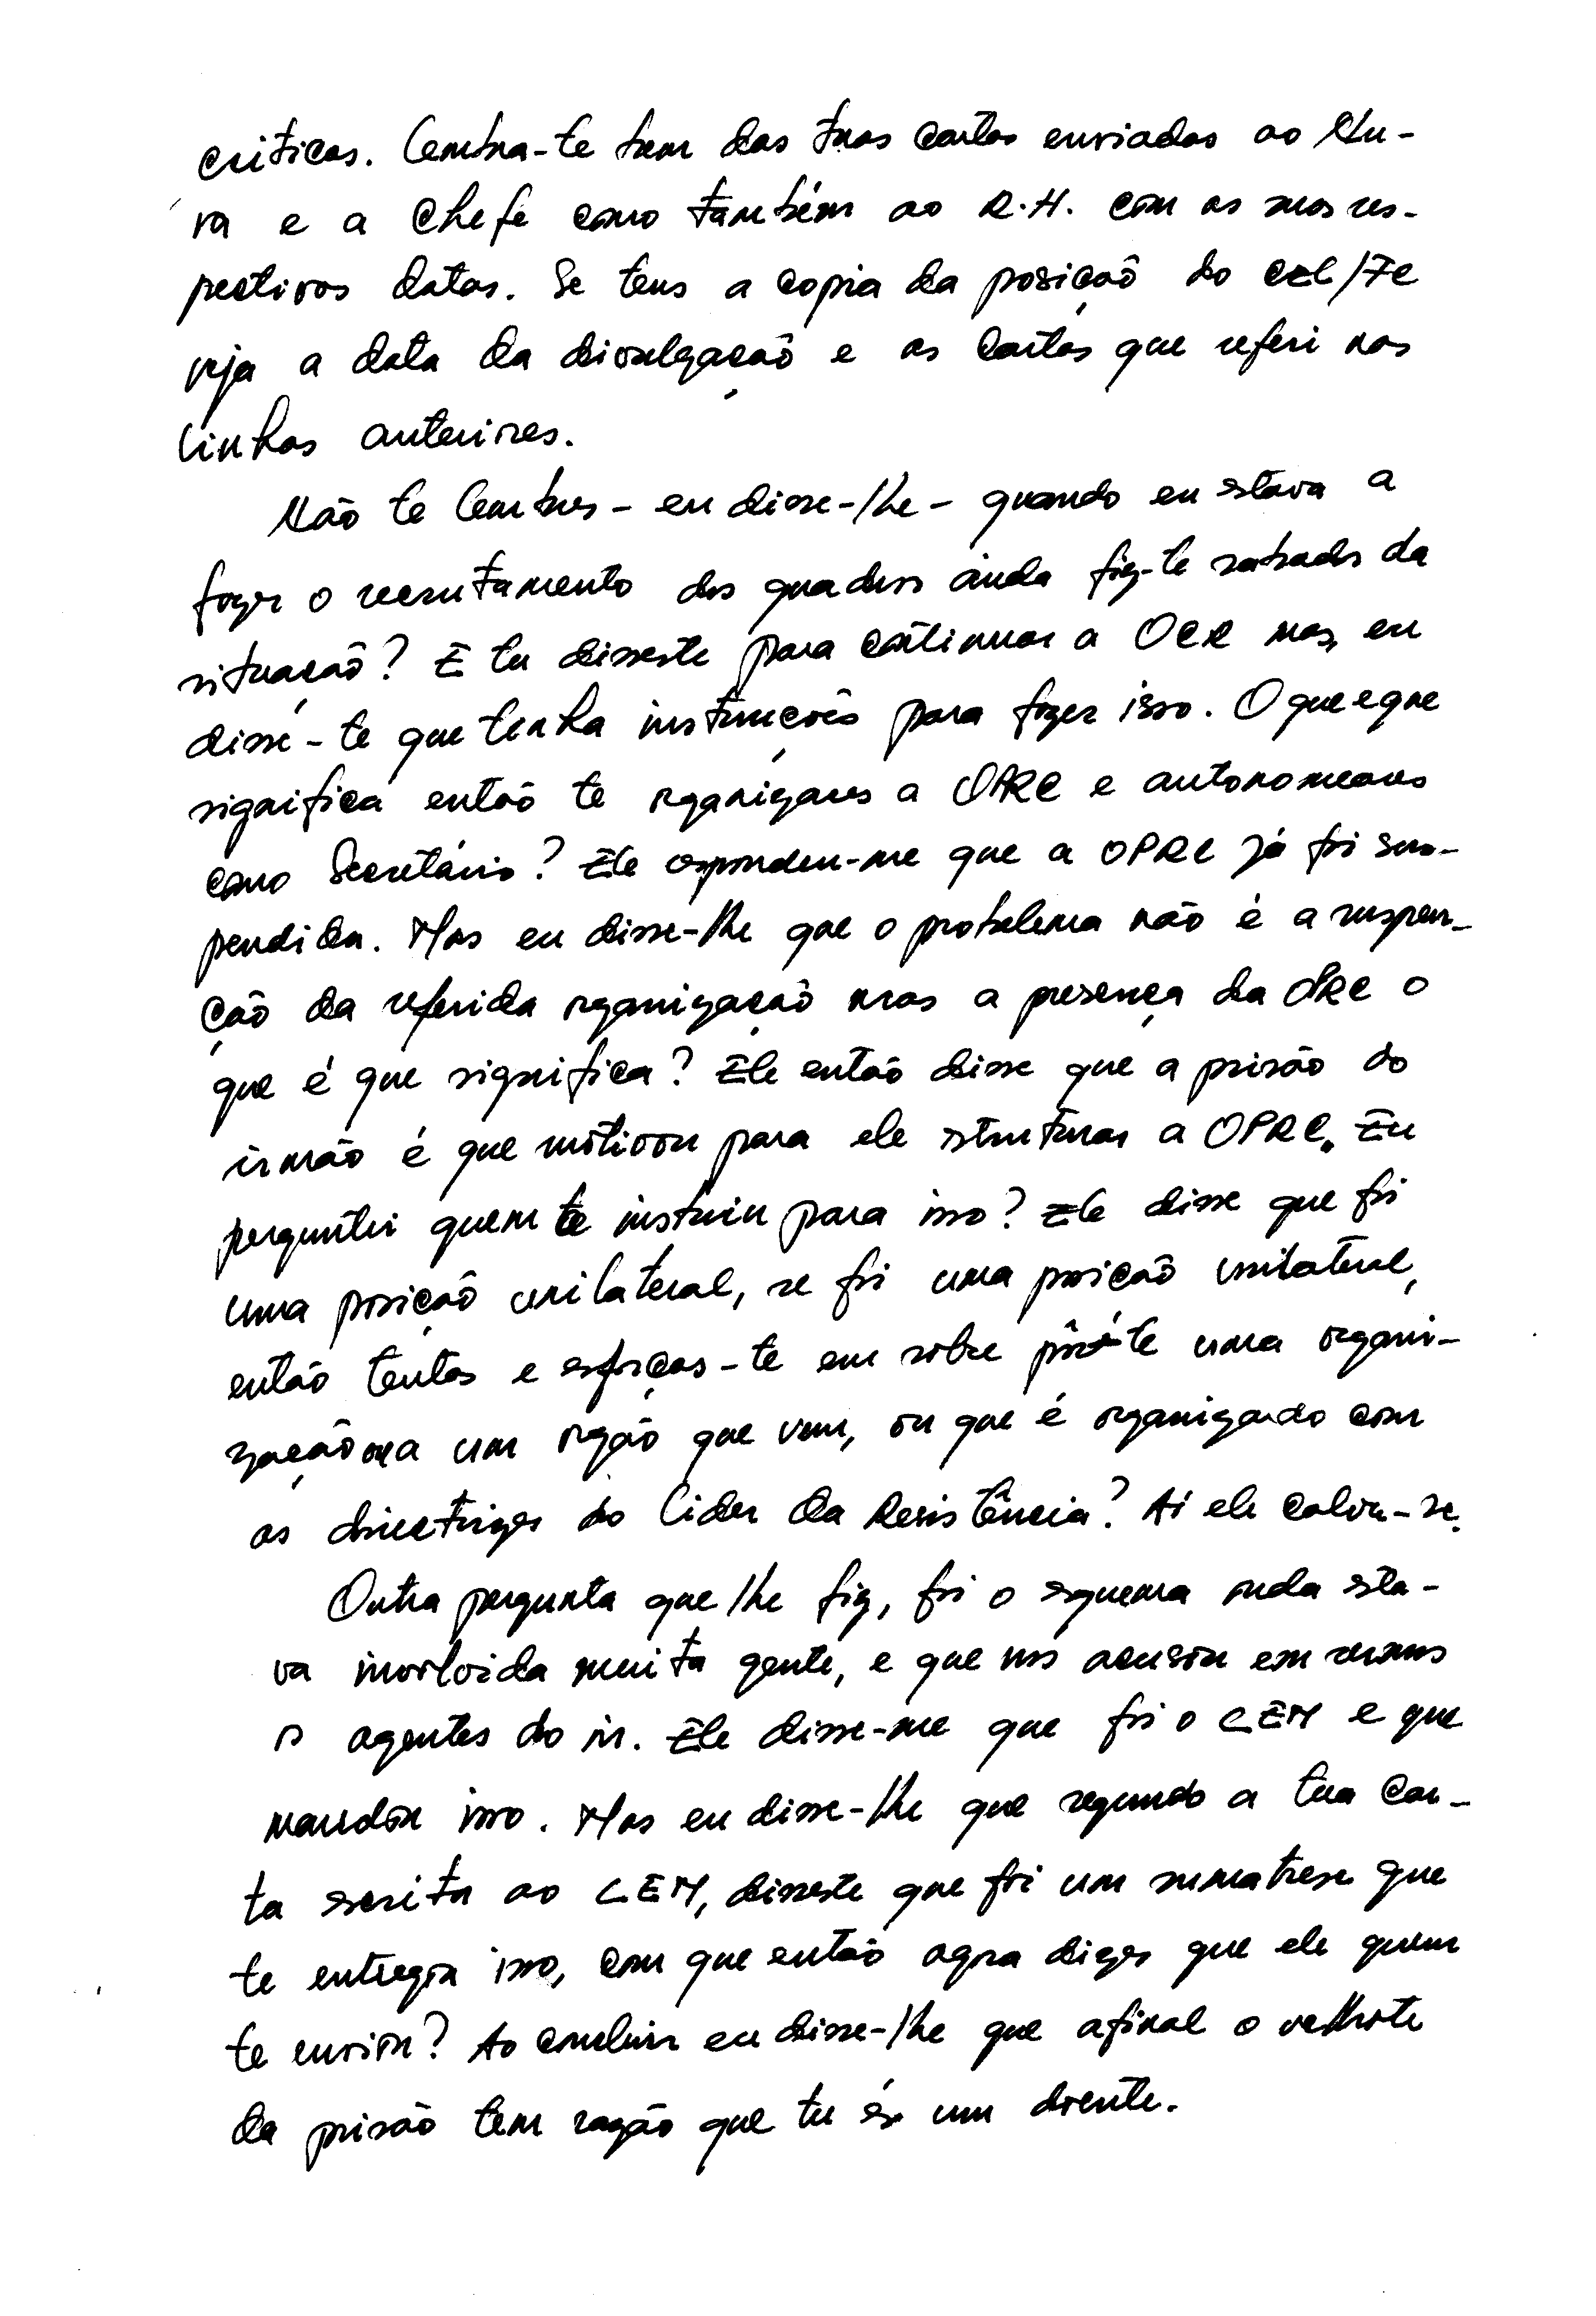 criticas. Lembra-te bem das tuas cartas enviadas ao Nu-
va e a Chefe como também ao R.H. com as suas res-
pectivas datas. Se tens a copia da posição do CEL/FC
veja a data da divulgação e as cartas que referi nas
linhas anteriores.
Não te lembres - eu disse-lhe - quando eu estava a
fazer o recrutamento dos quadros ainda fiz-te sabado da
situação? E tu disseste para continuar a OCR mas, eu
disse-te que tenha instruções para fazer isso. O que e que
significa então te organizares a OPRC e autonomeares
como Secretário? Ele esponden-me que a OPRC já foi sus-
pendida. Mas eu disse-lhe que o problema não é a suspen-
ção da referida organização mas a presença da OPRC o
que é que significa? Ele então disse que a prisão do
irmão é que motivou para ele struturar a OPRC. Eu
perguntei quem te instruiu para isso? Ele disse que foi
uma posição unilateral, se foi uma posição unilateral,
então tentas e esforças-te em sobre pôr-te uma organi-
zação a um orgão que vem, ou que é organizado com
as directrizes do Lider da Resistência? Aí ele calou-se.
Outra pergunta que lhe fiz, foi o esquema onda sta-
va involvida muita gente, e que nos acusou em sermos
os agentes do in. Ele disse-me que foi o CEM e que
mandou isso. Mas eu disse-lhe que segundo a tua car-
ta escrita ao CEM, disseste que foi um sumatrese que
te entregou isso, com que então agora dizes que ele quem
te enviou? Ao concluir eu disse-lhe que afinal o velhote
da prisão tem razão que tu és um doente.